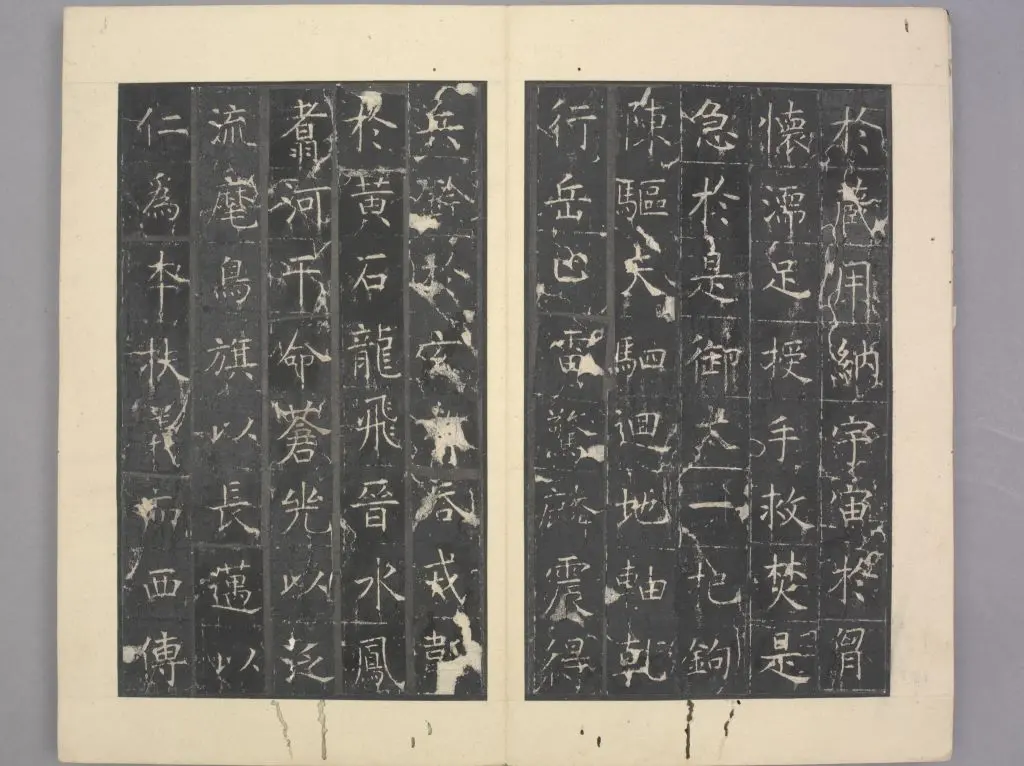 於藏用納宇宙於胷
懷濡足授手救焚是
急於是御大一把鉤
陳驅天駟迴地軸乹
行岳止雷驚震得
兵鈐於玄戎韜
於黃石龍飛晉水鳳
翥河干命蒼兕以泛
流麾鳥旗以長邁以
仁為本扶義而西傳